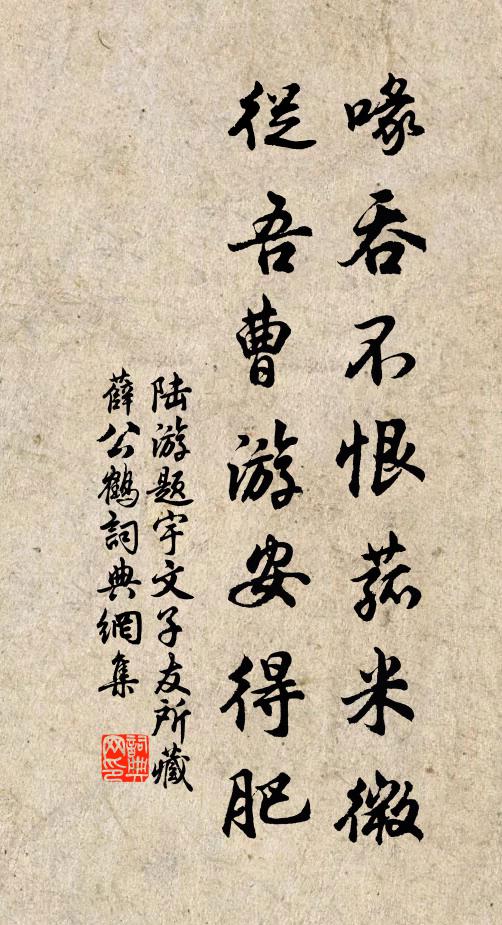 喙吞不恨菰米微
從吾曹游安得肥
陆游题宇文子友所藏
薛公鶴詞典網集
詞典
网印